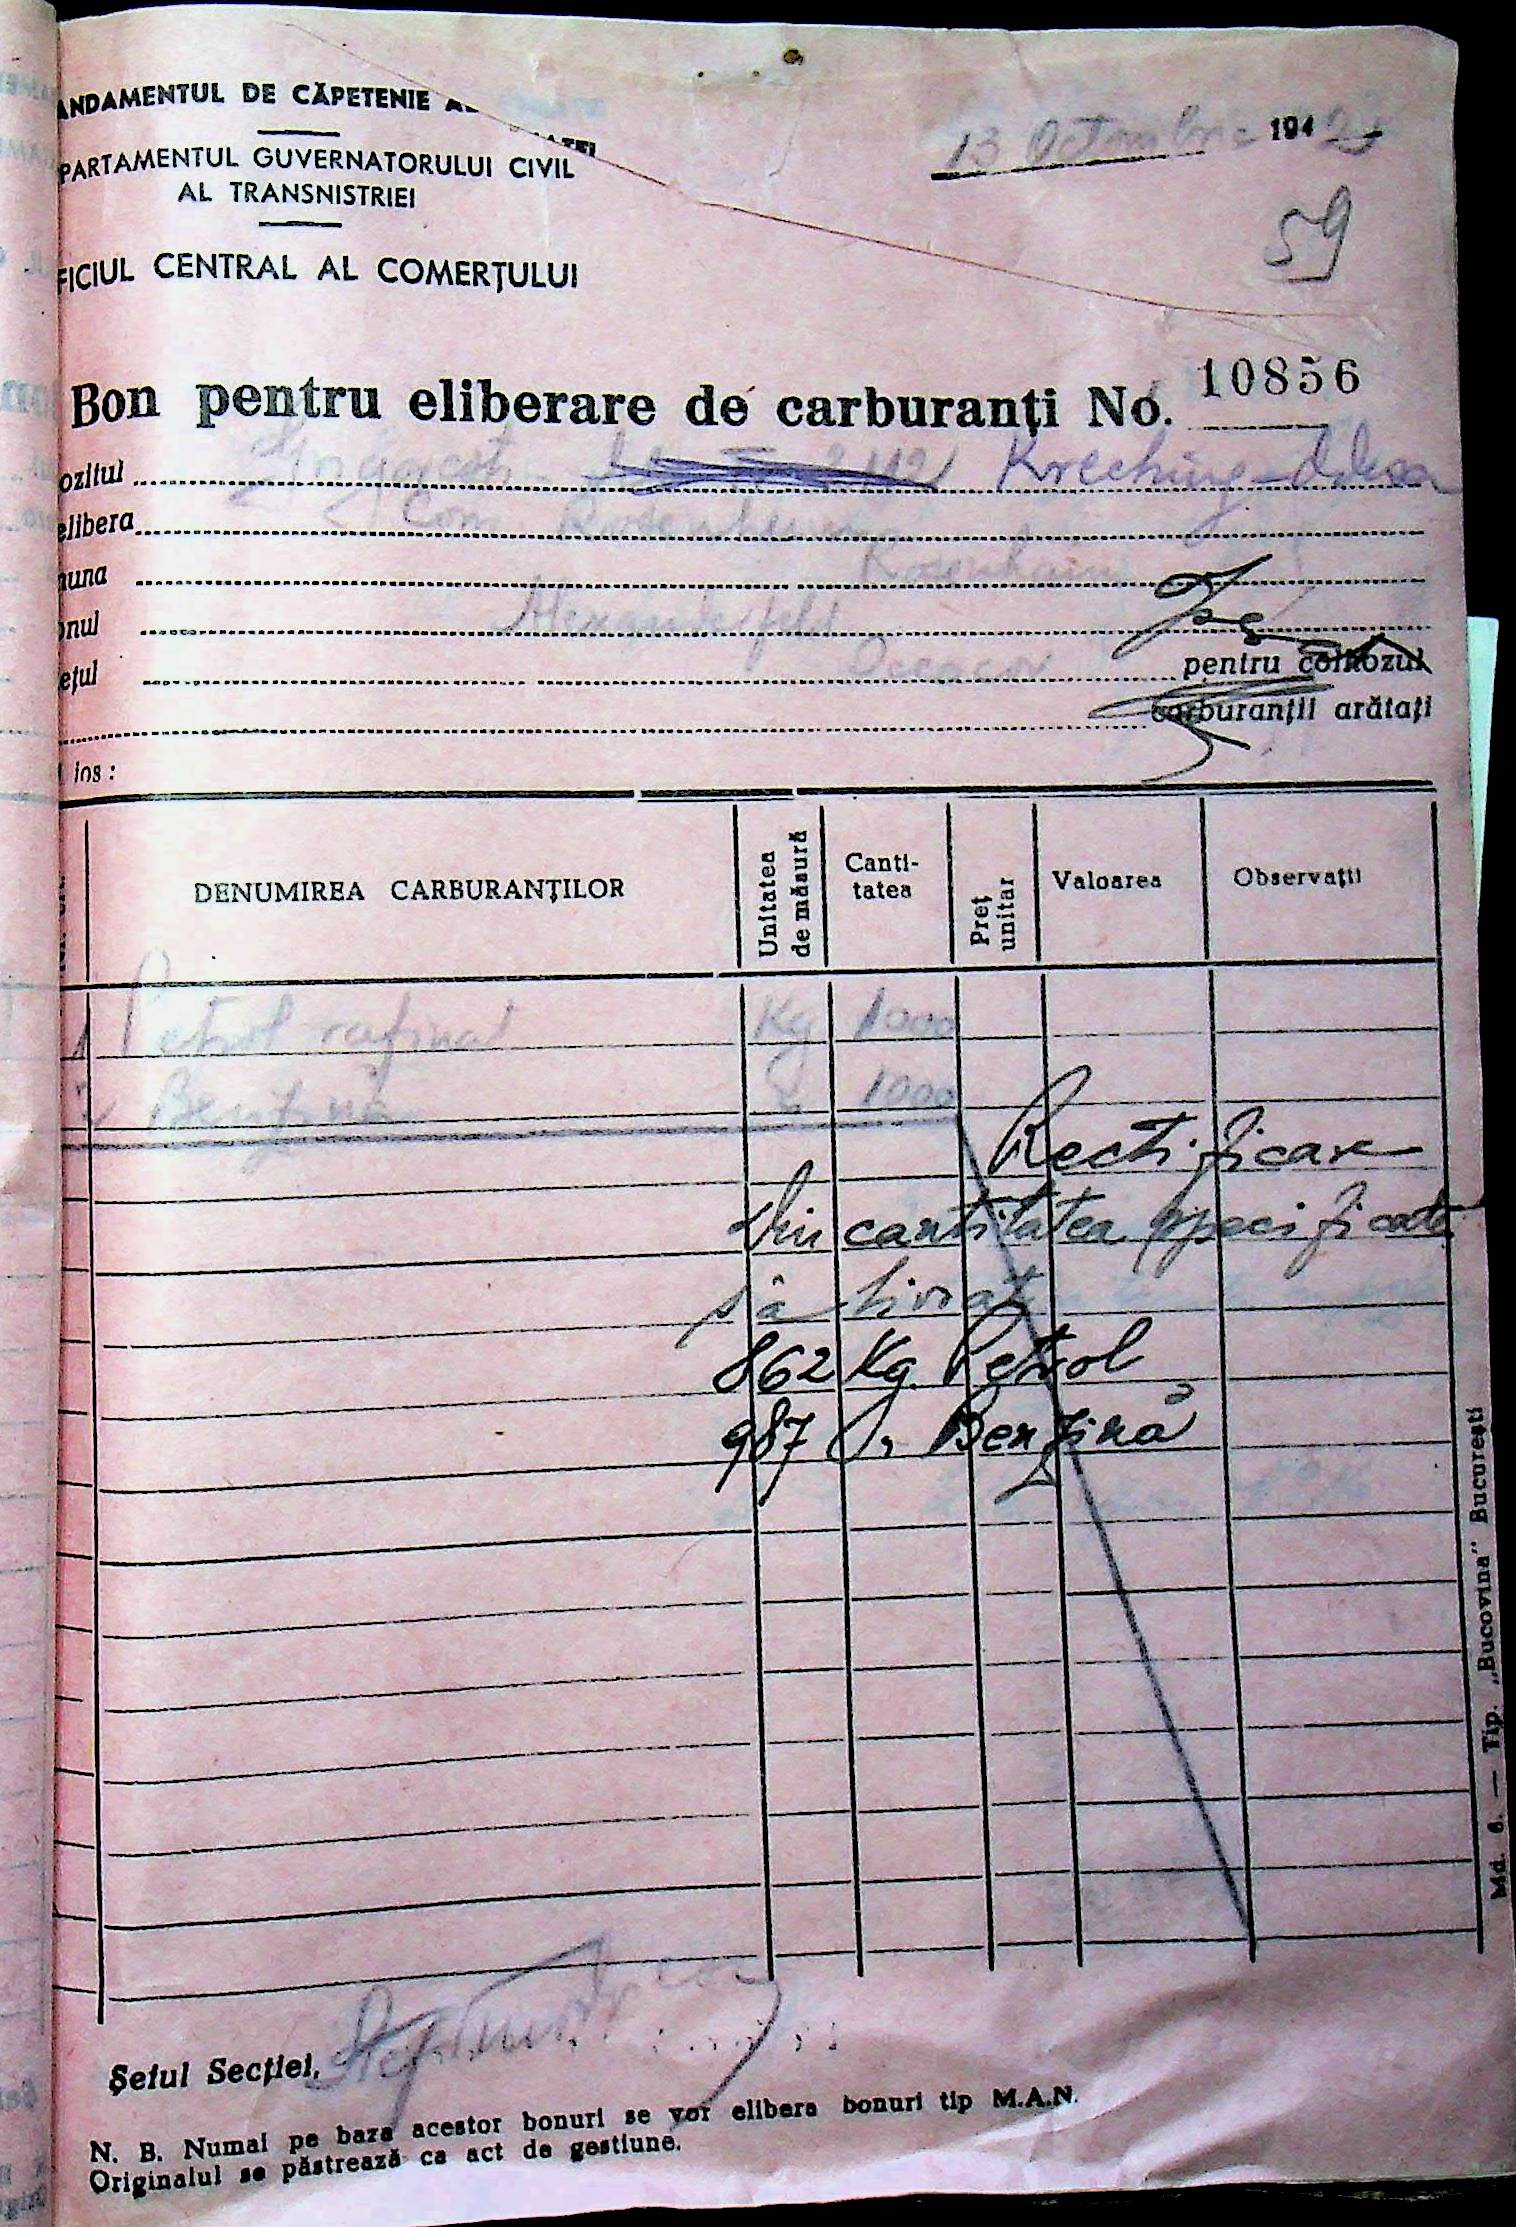 ANDAMENTUL DE CĂPETENIE AL
PARTAMENTUL GUVERNATORULUI CIVIL
AL TRANSNISTRIEI
FICIUL CENTRAL AL COMERȚULUI
13 Octombrie 1942
59
Bon pentru eliberare de carburanți No. 10856
ozitul
elibera Com.
muna Rosenhain
onul Alexanderfeld
ețul pentru colhozul
carburanții arătați
jos:
DENUMIREA CARBURANȚILOR Unitatea de măsură Canti-tatea Preț unitar Valoarea Observații
1 Petrol rafinat Kg 1000
2 Benzină " 1000
Rectificare
Din cantitatea specificată
s'a livrat
862 Kg Petrol
987 Benzină
Șeful Secției,
N. B. Numai pe baza acestor bonuri se vor elibera bonuri tip M.A.N.
Originalul se păstrează ca act de gestiune.
Md. 6. — Tip. „Bucovina" București